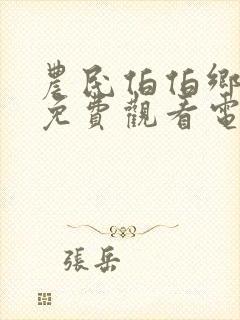 農民伯伯鄉
免費觀看電
張岳